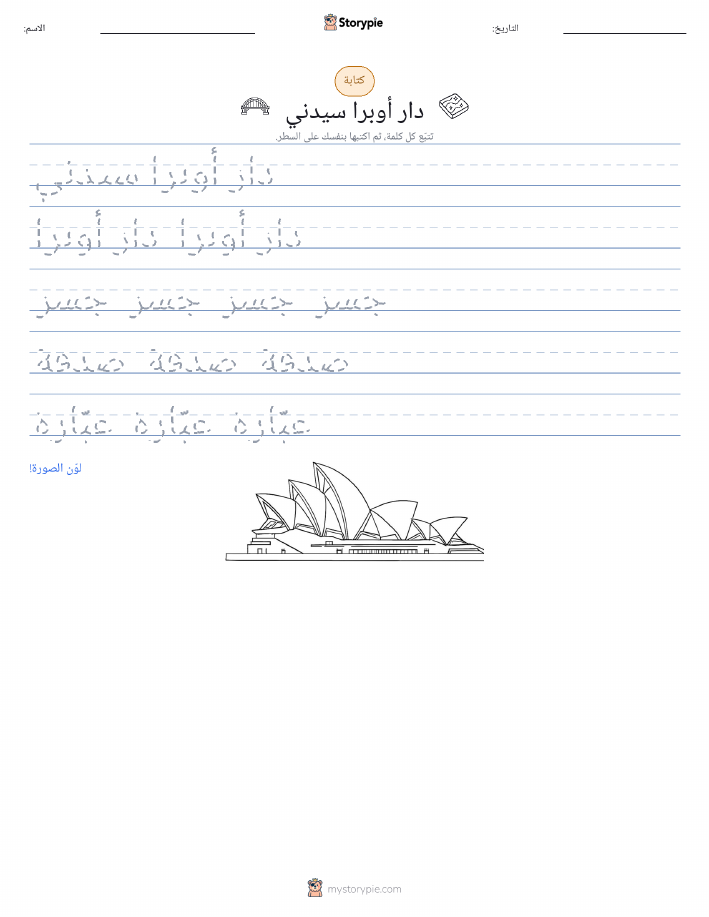 Storypie
الاسم:
التاريخ:
كتابة
دار أوبرا سيدني
تتبّع كل كلمة، ثم اكتبها بنفسك على السطر.
دار أوبرا سيدني
دار أوبرا دار أوبرا
جسر جسر جسر جسر
صدفة صدفة صدفة
عبّارة عبّارة عبّارة
لوّن الصورة!
mystorypie.com